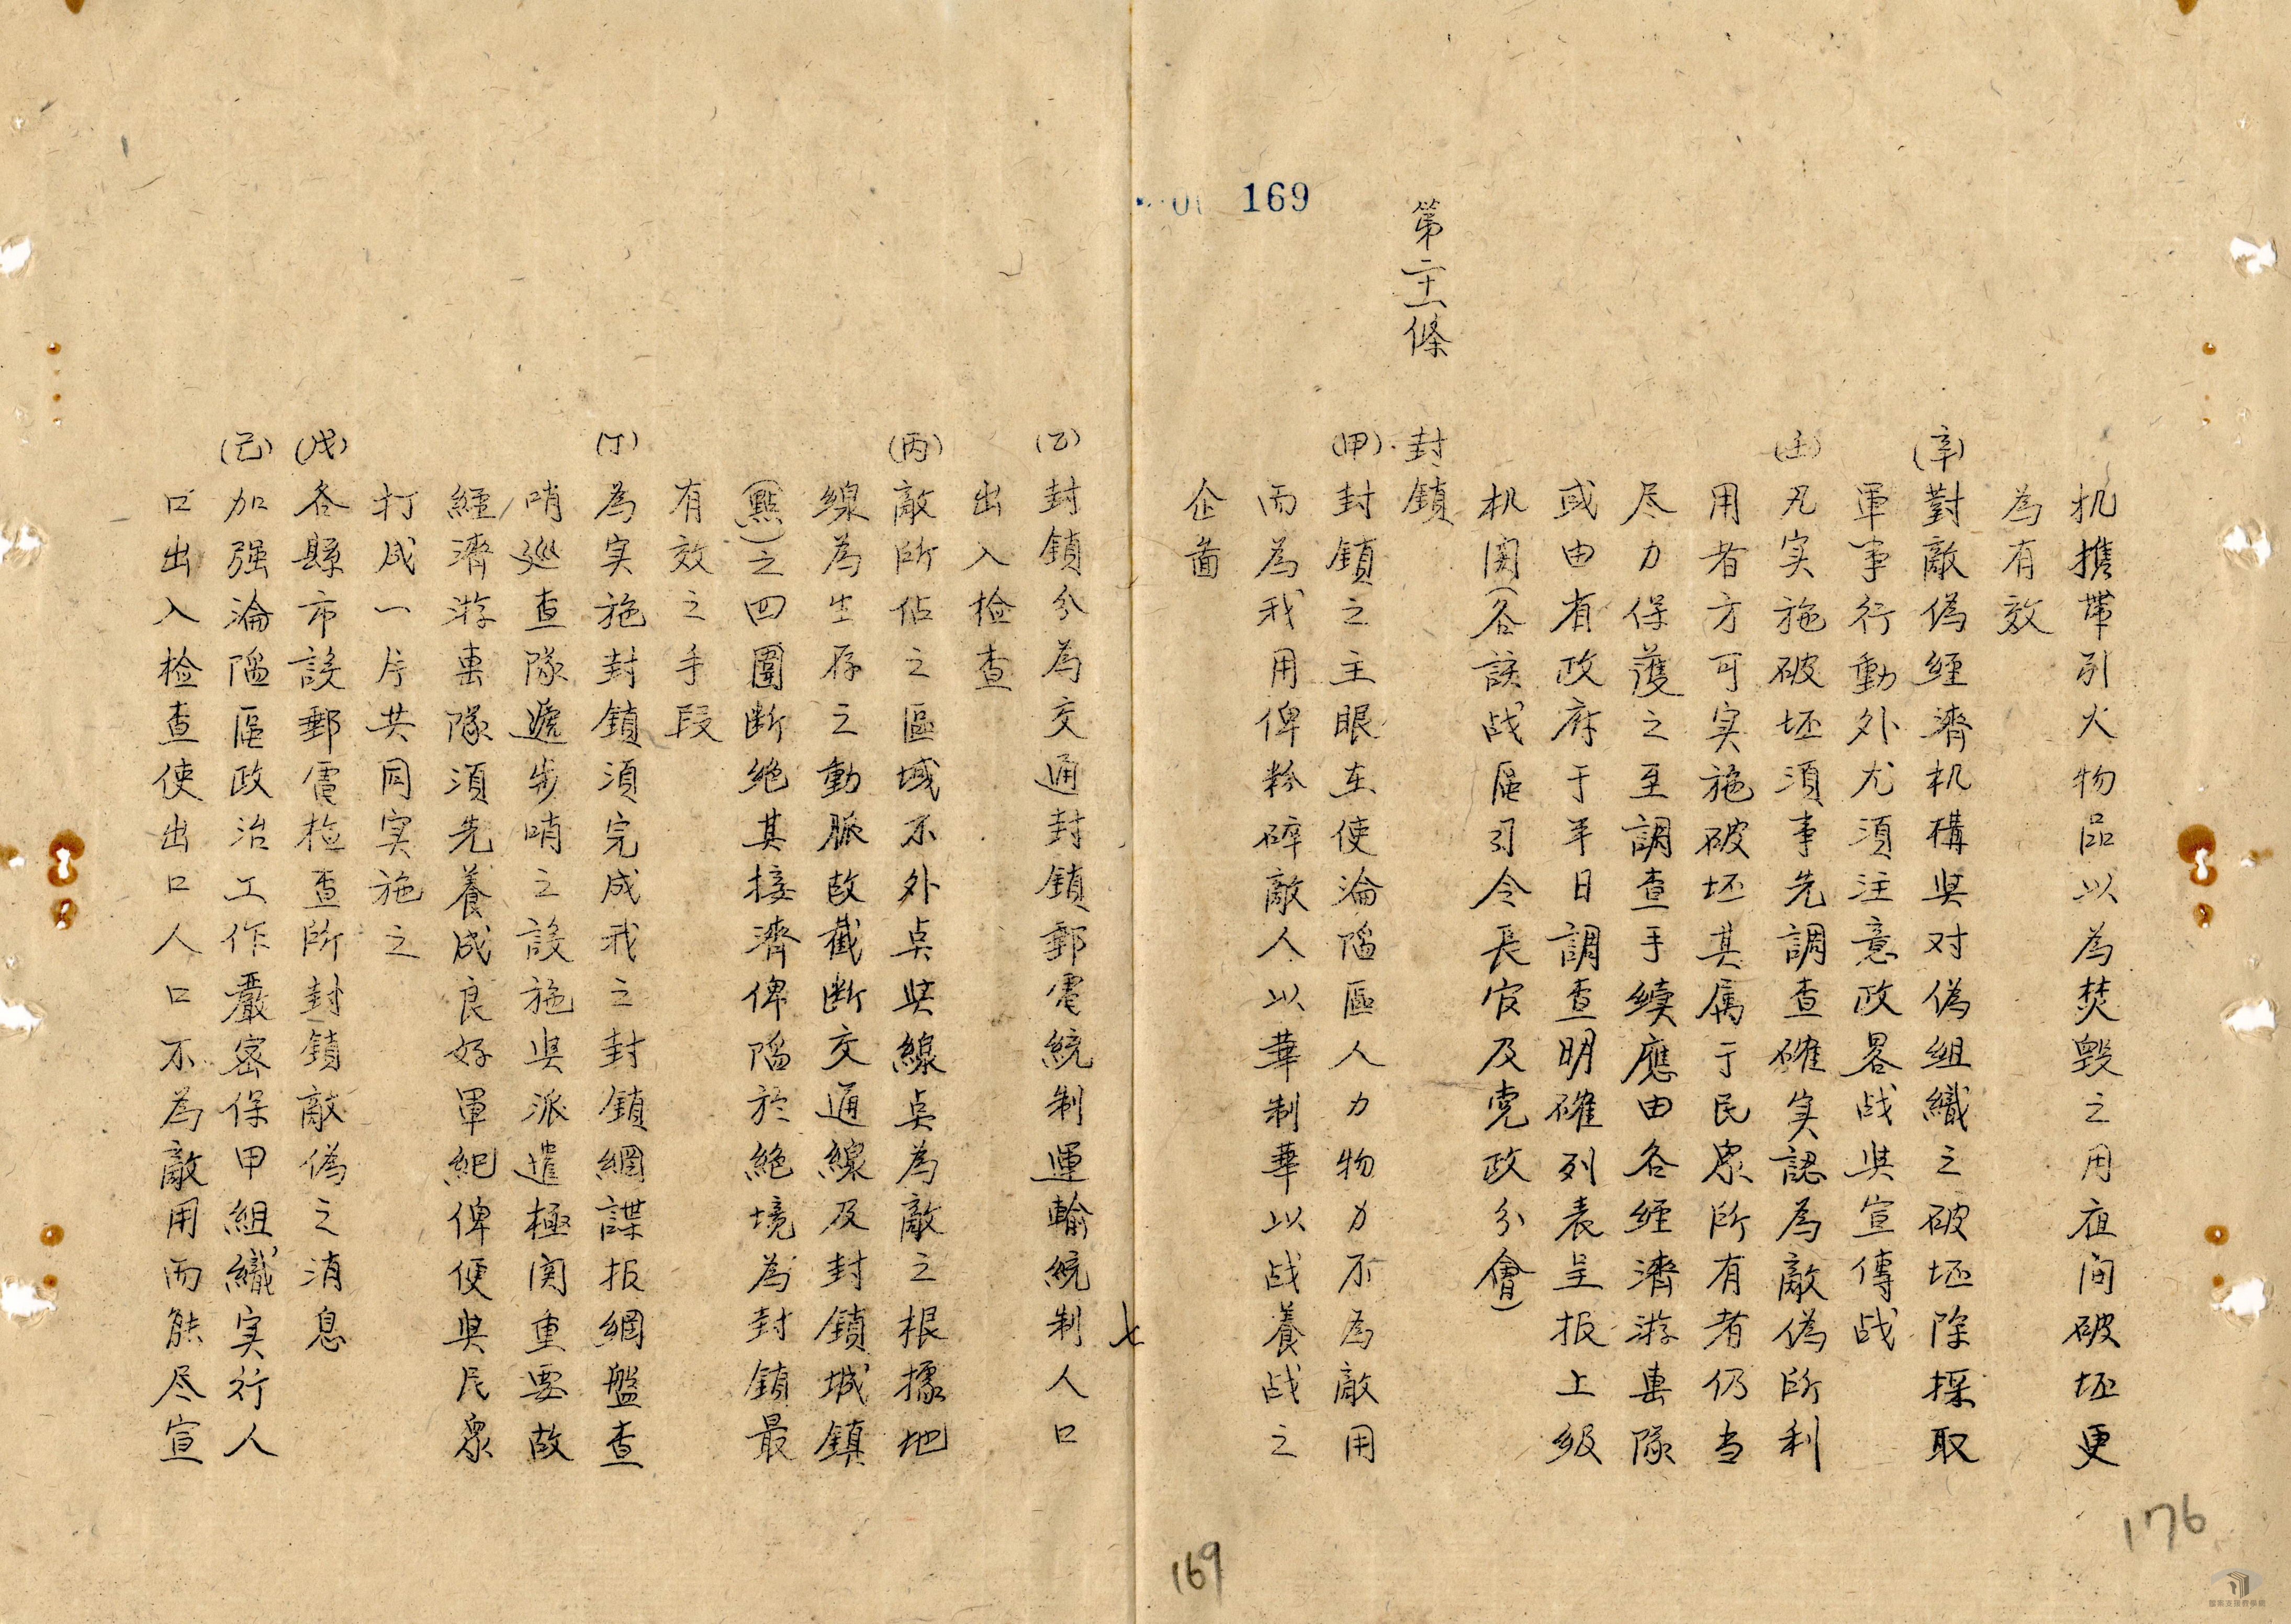 169
机携帶引火物品以為焚毀之用夜间破坯更
為有效
(辛)對敵偽經濟机構與对偽組織之破坯除採取
軍事行動外尤須注意政畧战與宣傳战
(壬)凡实施破坯須事先調查確实認為敵偽所利
用者方可实施破坯其属于民眾所有者仍当
尽力保護之至調查手續應由各經濟游擊隊
或由有政府于平日調查明確列表呈报上级
机関(各該战區司令長官及党政分會)
第二十一條 封鎖
(甲)封鎖之主眼在使淪陷區人力物力不為敵用
而為我用俾粉碎敵人以華制華以战養战之
企啚
(乙)封鎖分為交通封鎖郵電統制運輸統制人口
出入检查
(丙)敵所佔之區域不外点與線点為敵之根據地
線為生存之動脈故截断交通線及封鎖城鎮
(點)之四圍断绝其接濟俾陷於絶境為封鎖最
有效之手段
(丁)為实施封鎖須完成我之封鎖網諜报網盤查
哨巡查隊遞步哨之設施與派遣極関重要故
經濟游擊隊須先養成良好軍紀俾便與民眾
打成一片共同实施之
(戊)各縣市設郵電检查所封鎖敵偽之消息
(己)加强淪陷區政治工作嚴密保甲組織实行人
口出入检查使出口人口不為敵用而能尽宣
169
176
國家文化記憶庫